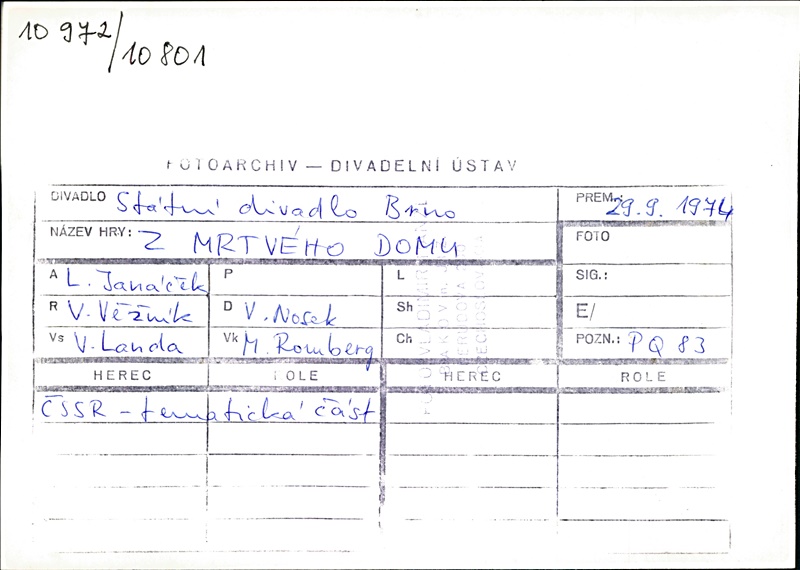 10 972/10 801
FOTOARCHIV — DIVADELNÍ ÚSTAV
DIVADLO Státní divadlo Brno PREM.: 29.9. 1974
NÁZEV HRY: Z MRTVÉHO DOMU FOTO
A L. Janáček P L SIG.:
R V. Věžník D V. Nosek Sh E/
Vs V. Landa Vk M. Romberg Ch POZN.: PQ 83
HEREC ROLE HEREC ROLE
ČSSR - tematická část